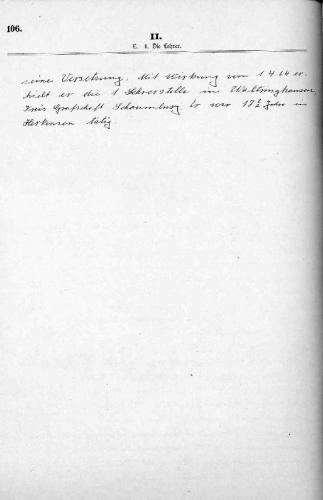 106.
II.
C. 1. Die Lehrer.
seine Versetzung. Mit Wirkung vom 1 4.64 er-
hielt er die 1 Lehrerstelle in Waltringhausen
Kreis Grafschaft Schaumburg. Er war 17½ Jahre in
Herkensen tätig